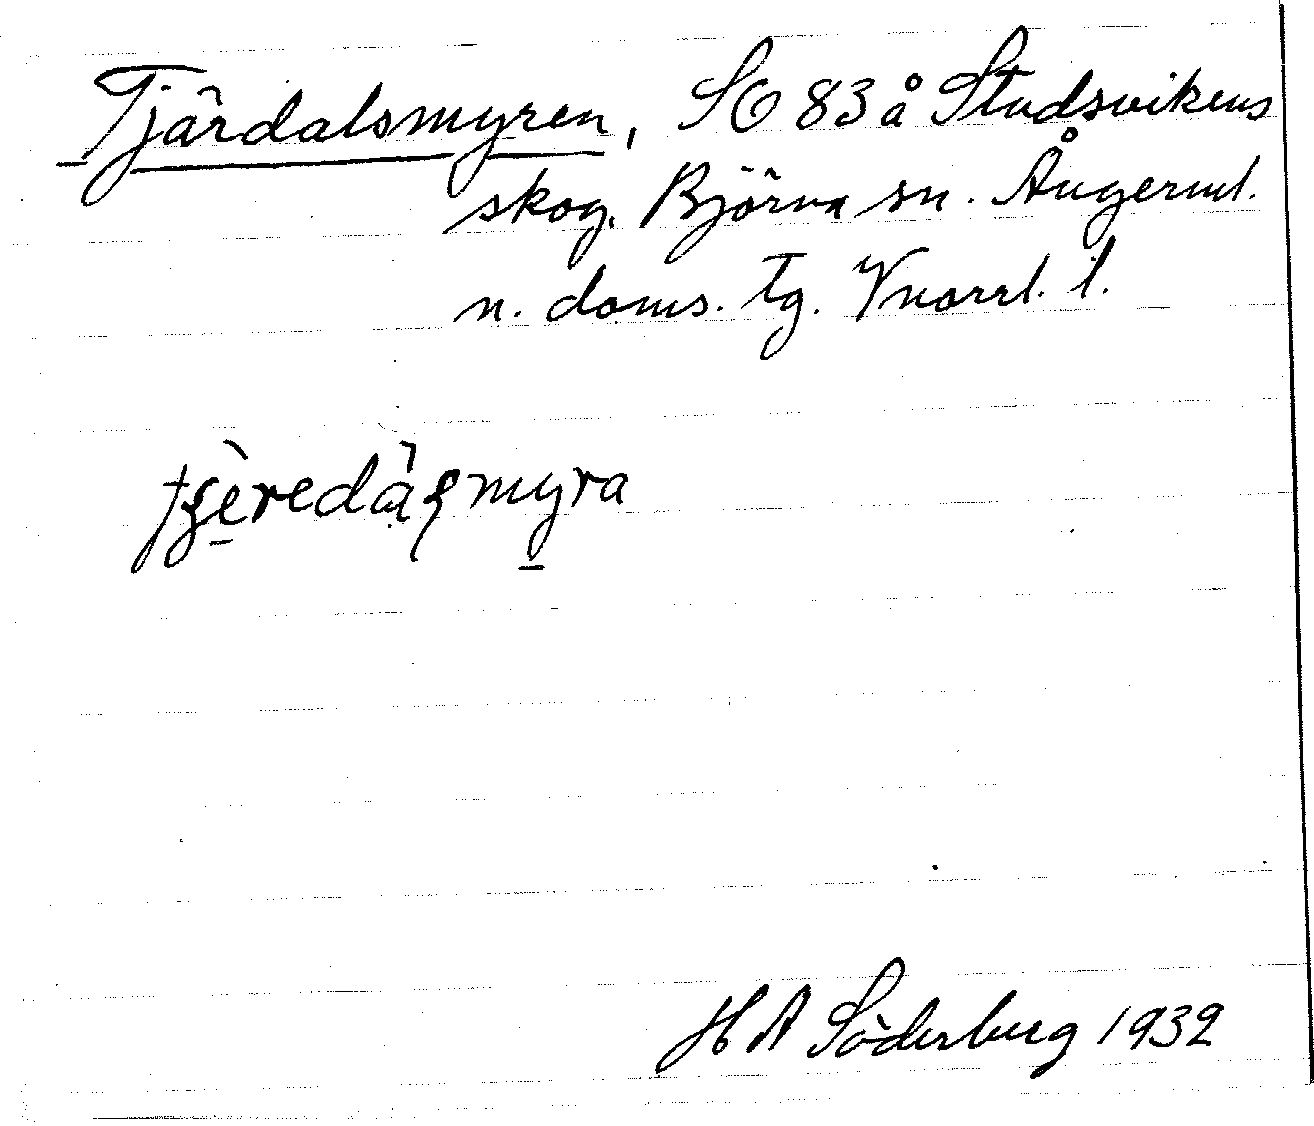 Tjärdalsmyren, SO 83 å Studsvikens
skog. Björna sn. Ångerml.
n. doms. tg. Vnorrl. l.
myra
H A Söderberg 1932